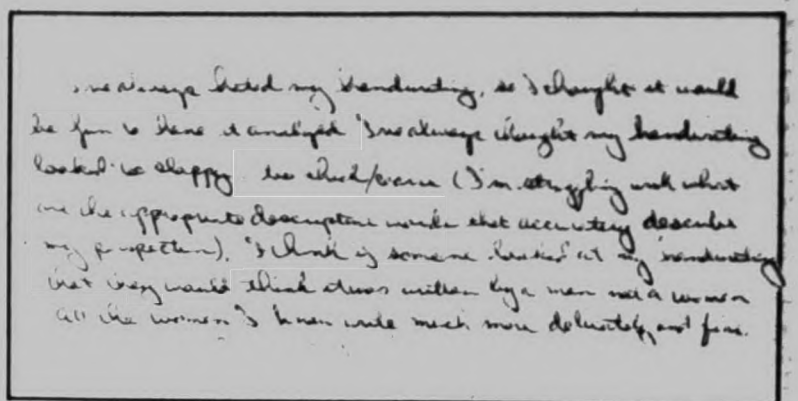 I've always hated my handwriting, so I thought it would
be fun to have it analyzed I've always thought my handwriting
looked so sloppy. too thick/ (I'm struggling with what
are the appropriate descriptive words that accurately describe
my perspective). I think if someone looked at my handwriting
that they would think it was written by a man not a woman
all the women I know write much more delicately, and fine.